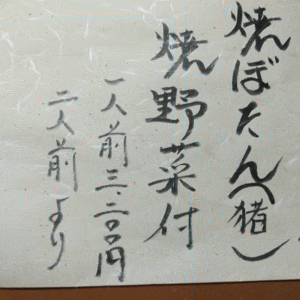 焼ぼたん(猪)
焼野菜付
一人前三、二〇〇円
二人前より